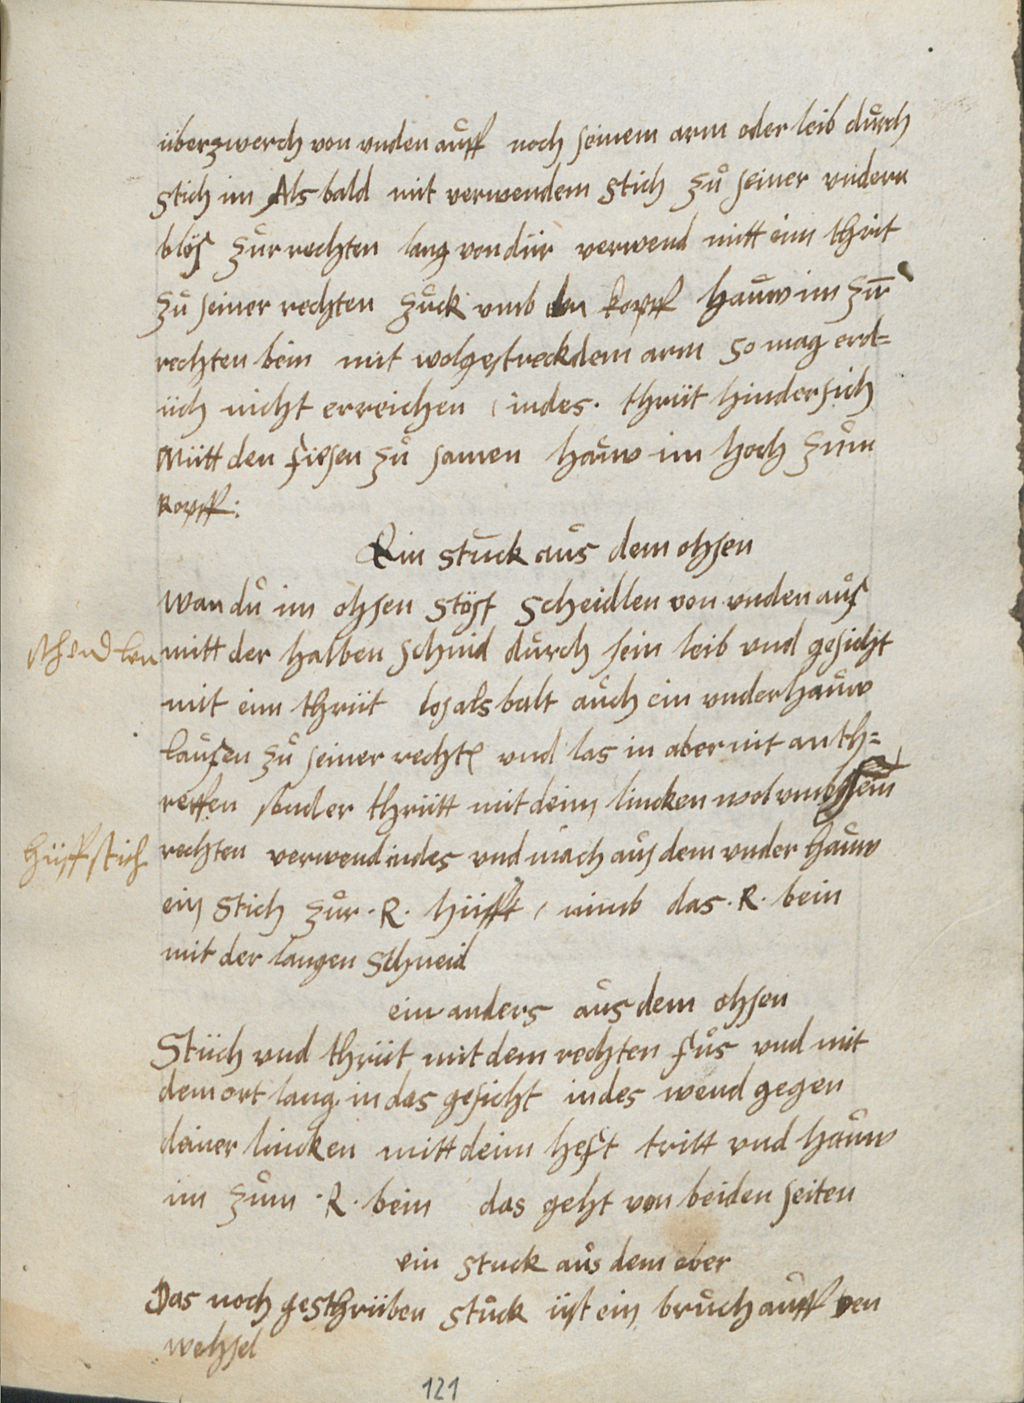 überzwerch von unden auff noch seinem arm oder leib durch
stich im Als bald mit verwendem stich zu seiner undern
blös zur rechten lang von dür verwend mitt eim thrit
zu seiner rechten zuck umb den kopff hauw im zur
rechten bein mit wolgestreckdem arm so mag er d=
üch nicht erreichen, indes. thrüt hindersich
Mütt den fiesen zu samen hauw im hoch zum
kopff:
Ein stuck aus dem ohsen
Wan du im ohsen stöst scheidlen von unden aus
mitt der halben schnid durch sein leib und gesicht
mit eim thrüt los als balt auch ein underhauw
laufen zu seiner recht und las in aber nit anth=
reffen sonder thrütt mit deim lincken wol umb sein
hüffstich
rechten verwend indes und mach aus dem under hauw
ein stich zur .R. hüfft, nimb das .R. bein
mit der langen schneid
ein anders aus dem ohsen
Stüch und thrüt mit dem rechten fus und mit
dem ort lang in das gesicht indes wend gegen
deiner lincken mitt deim heft tritt und hauw
im zum .R. bein das geht von beiden seiten
ein stuck aus dem eber
Das noch geschrüben stuck üst ein bruch auff den
wehsel
121